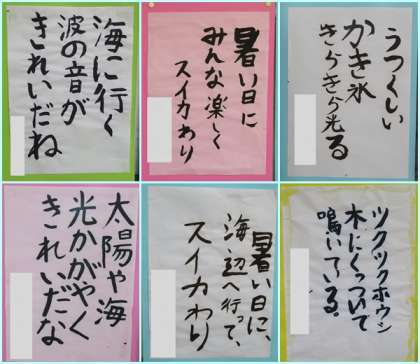 海に行く
波の音が
きれいだね
暑い日に
みんな楽しく
スイカわり
うつくしい
かき氷
きらきら光る
太陽や海
光かがやく
きれいだな
暑い日に、
海辺へ行って、
スイカわり
ツクツクホウシ
木にくっついて
鳴いている。